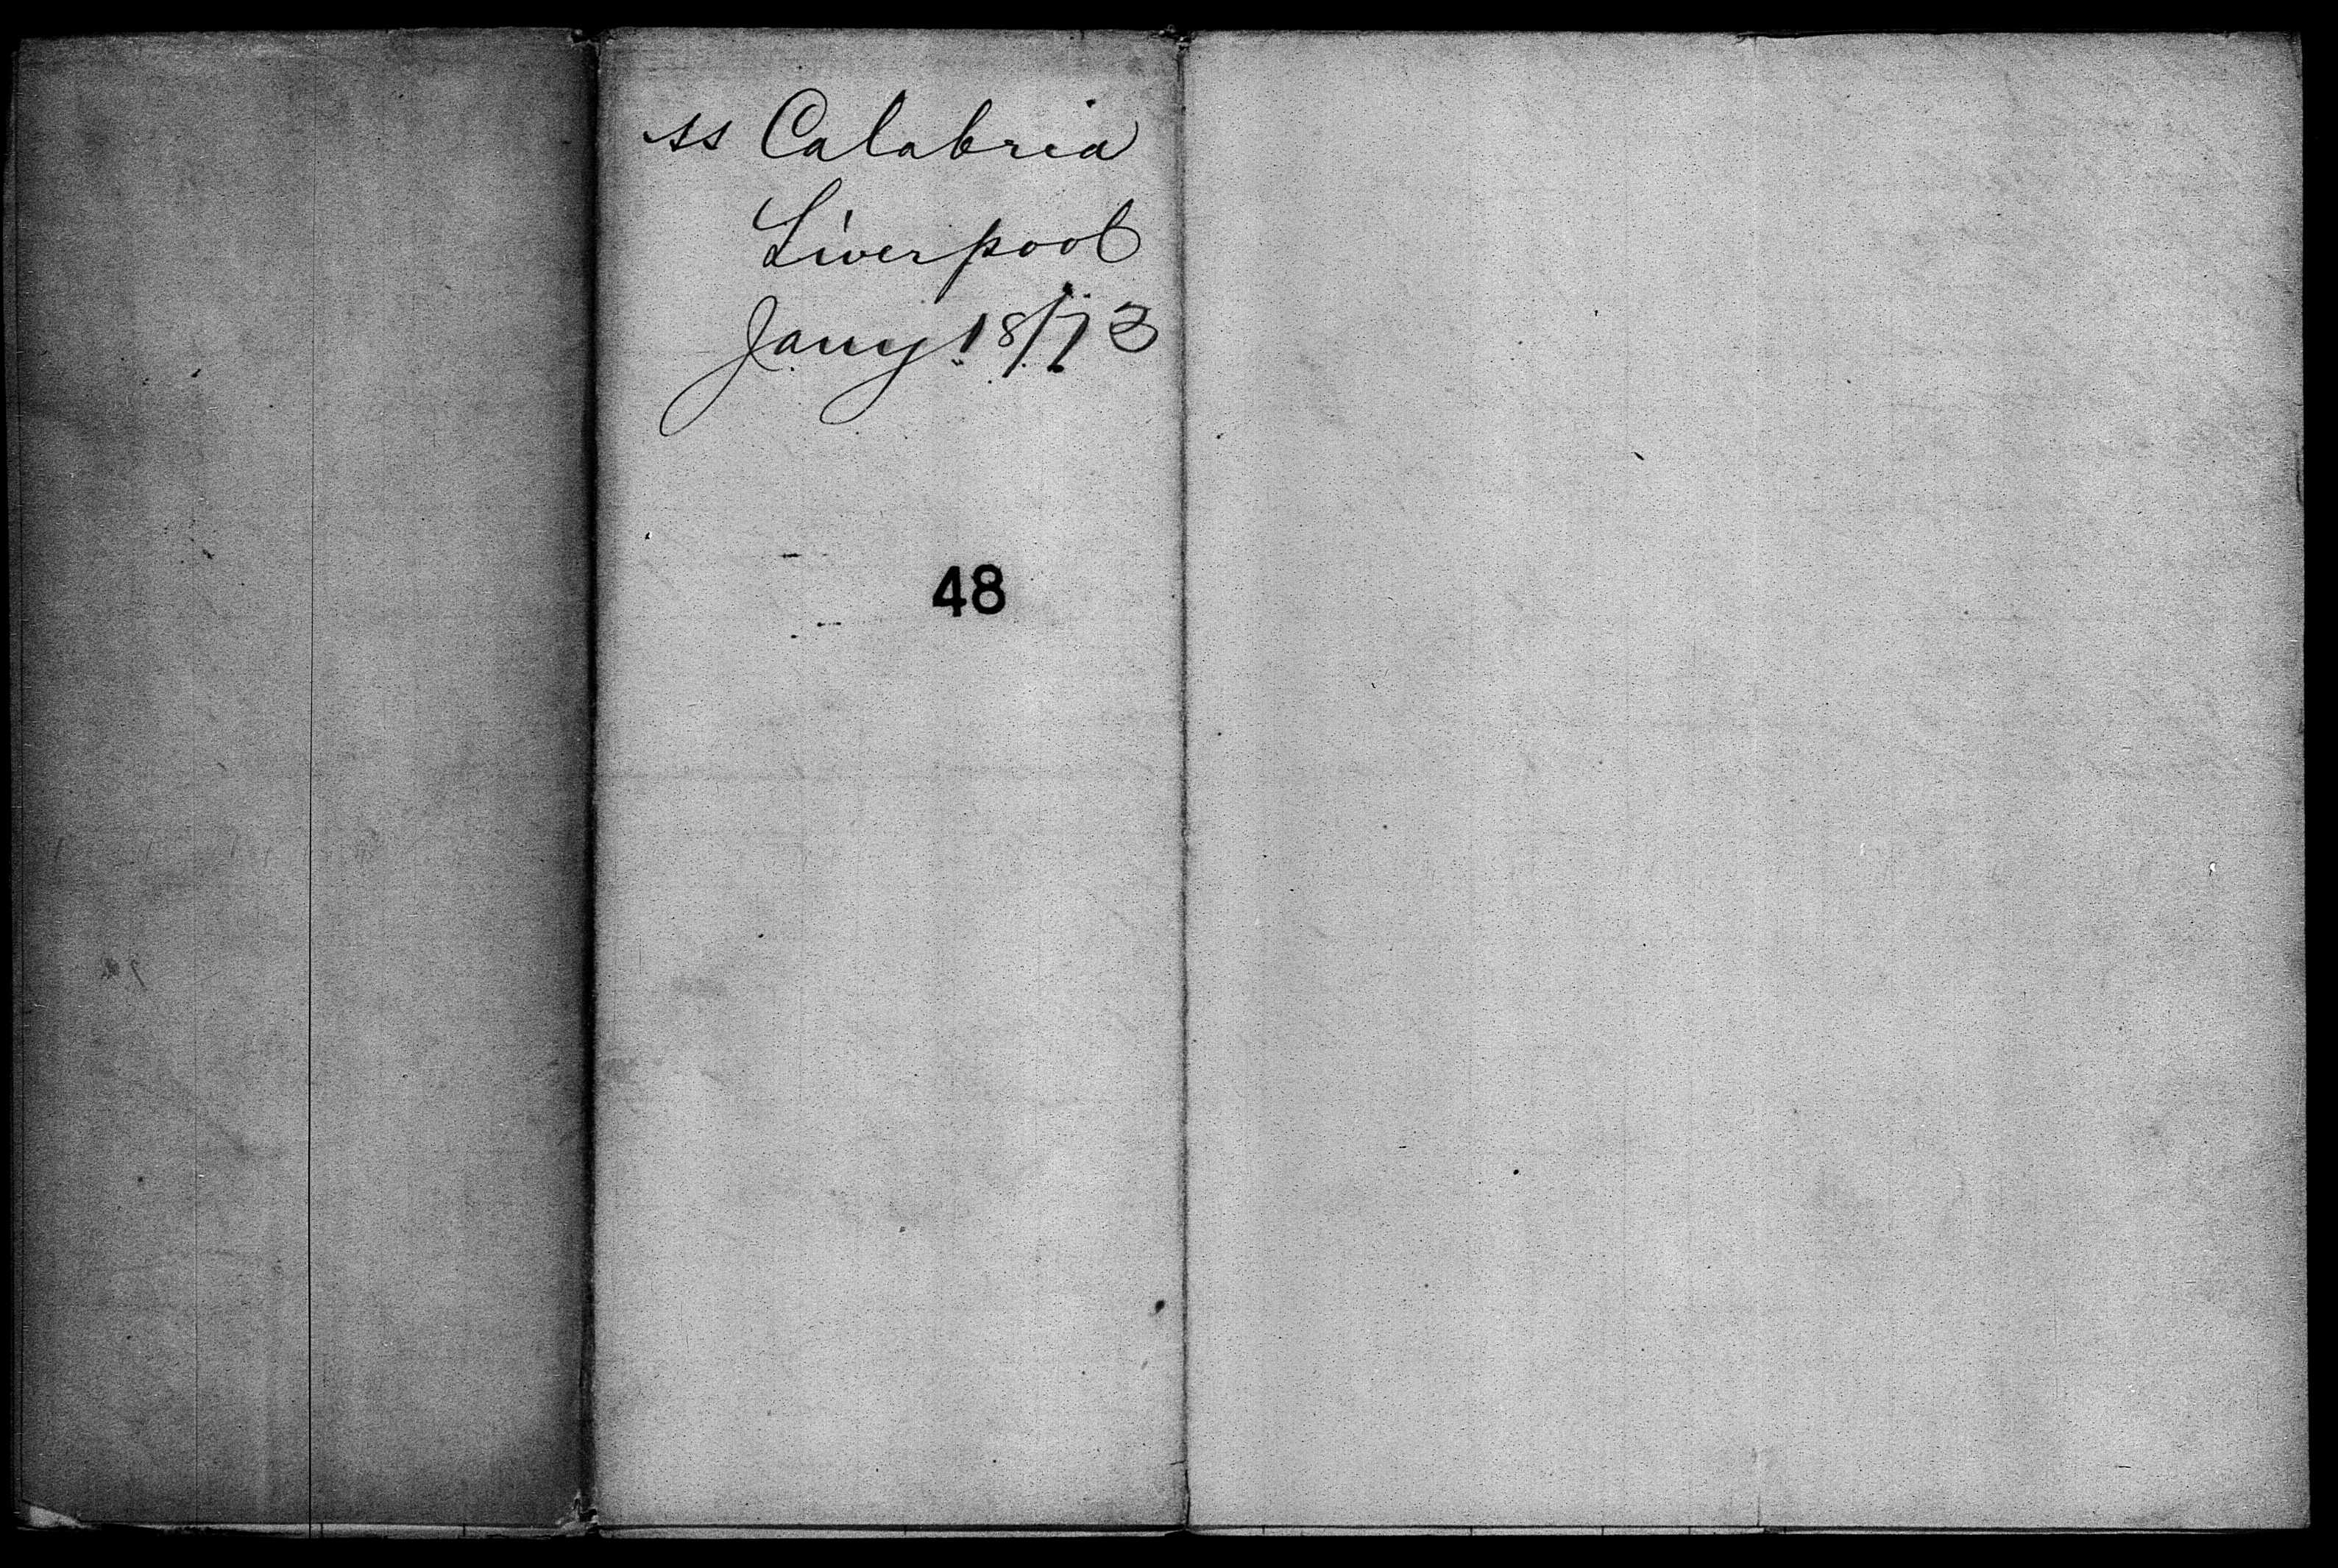 ss Calabria
Liverpool
Jany 18/73
48